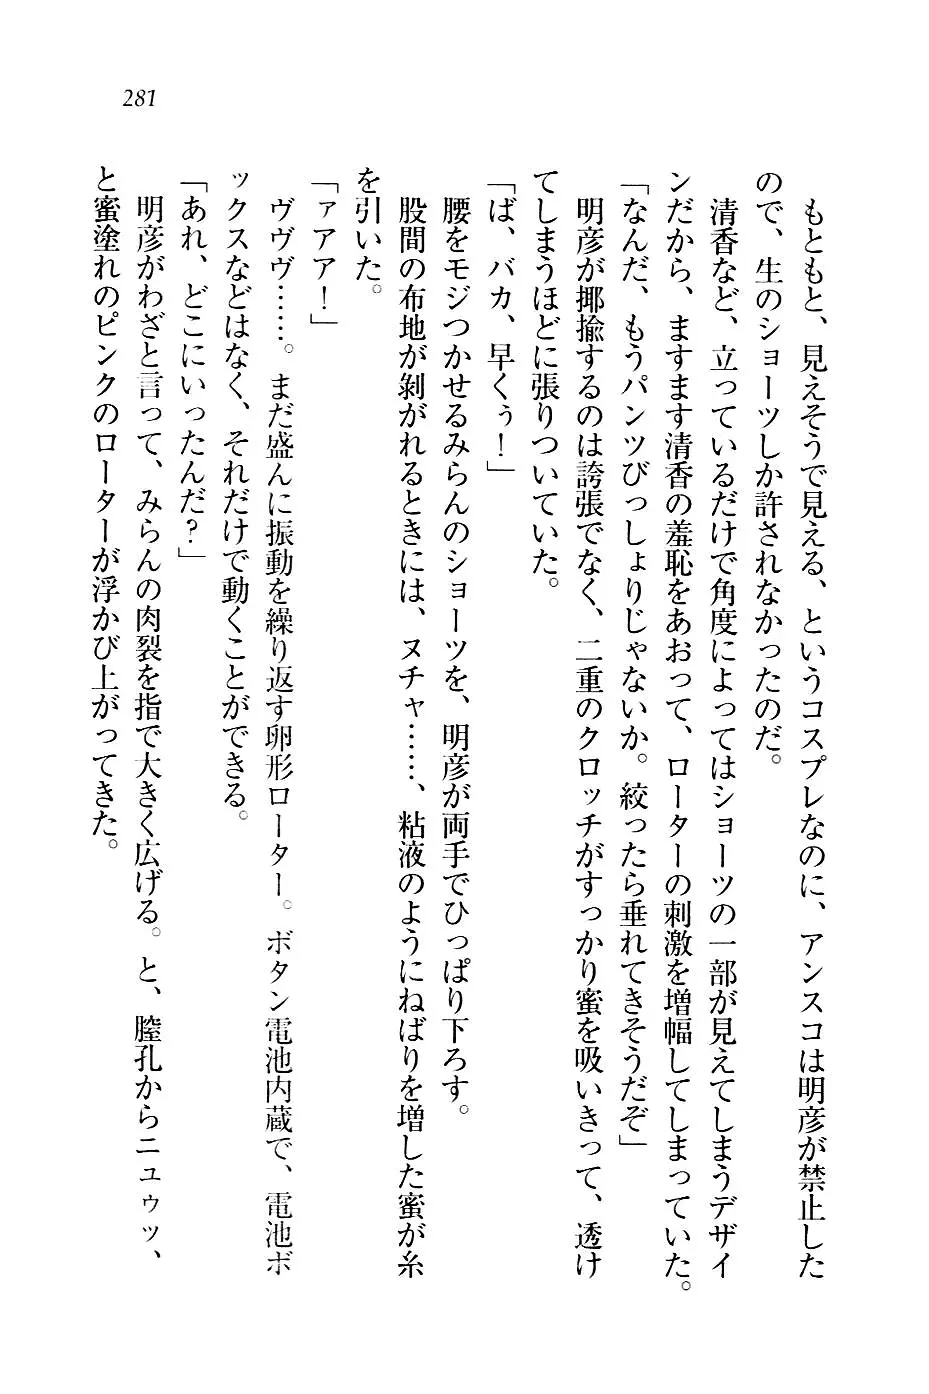 281
もともと、見えそうで見える、というコスプレなのに、アンスコは明彦が禁止した
ので、生のショーツしか許されなかったのだ。
清香など、立っているだけで角度によってはショーツの一部が見えてしまうデザイ
ンだから、ますます清香の羞恥をあおって、ローターの刺激を増幅してしまっていた。
「なんだ、もうパンツびっしょりじゃないか。絞ったら垂れてきそうだぞ」
明彦が揶揄するのは誇張でなく、二重のクロッチがすっかり蜜を吸いきって、透け
てしまうほどに張りついていた。
「ば、バカ、早くぅ！」
腰をモジつかせるみらんのショーツを、明彦が両手でひっぱり下ろす。
股間の布地が剝がれるときには、ヌチャ……、粘液のようにねばりを増した蜜が糸
を引いた。
「ァアア！」
ヴヴヴ……。まだ盛んに振動を繰り返す卵形ローター。ボタン電池内蔵で、電池ボ
ックスなどはなく、それだけで動くことができる。
「あれ、どこにいったんだ？」
明彦がわざと言って、みらんの肉裂を指で大きく広げる。と、膣孔からニュゥッ、
と蜜塗れのピンクのローターが浮かび上がってきた。